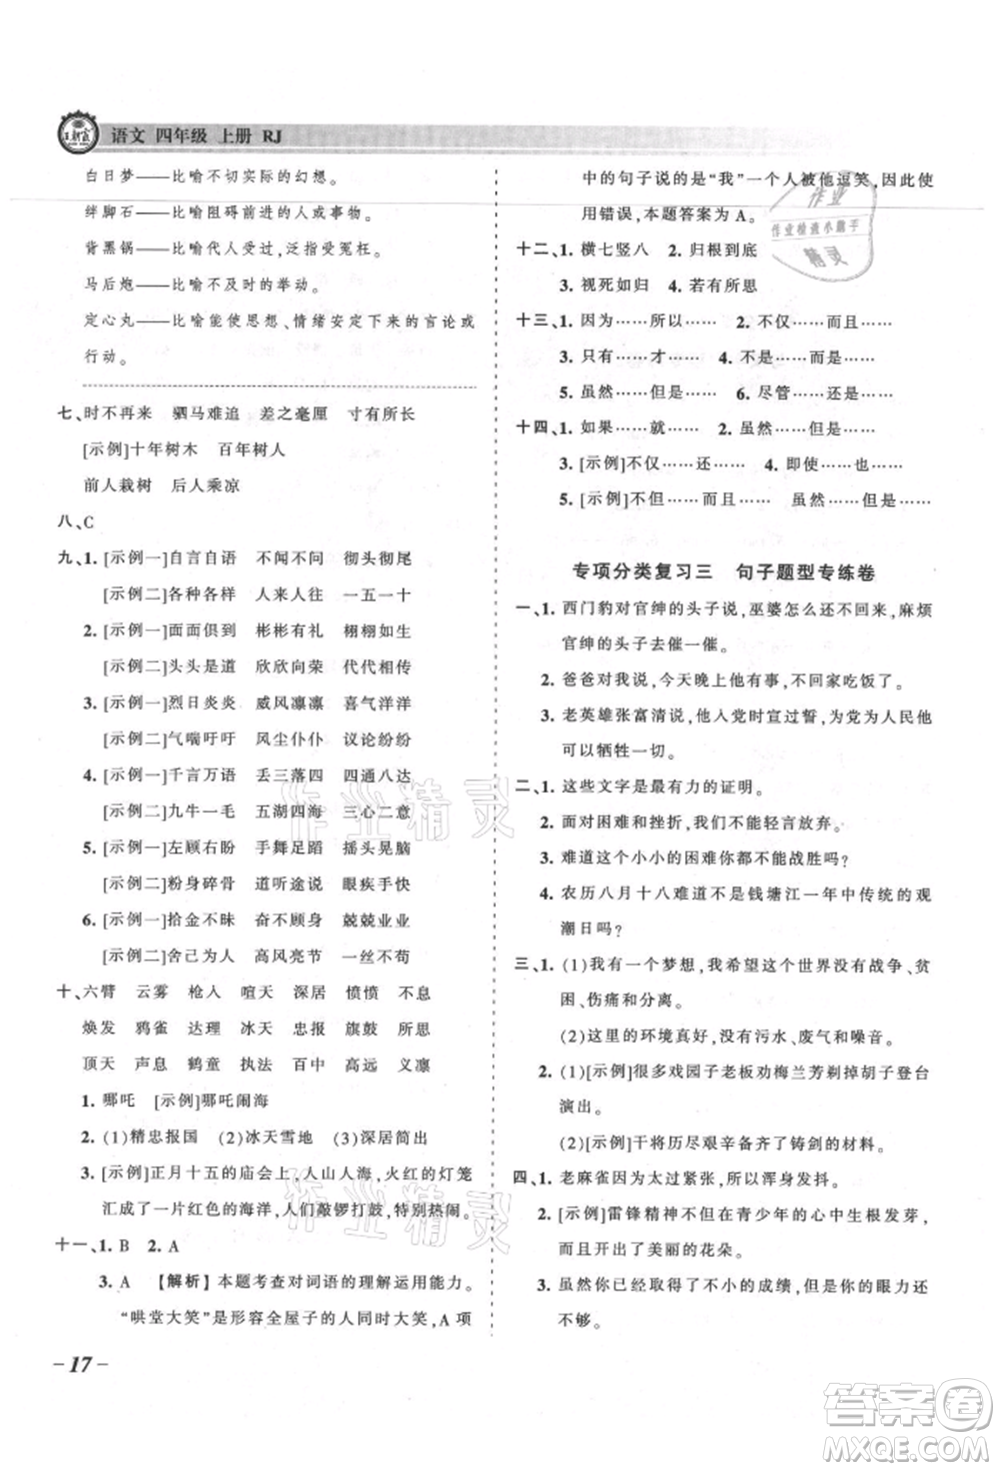 王朝霞 语文 四年级 上册 RJ
白日梦——比喻不切实际的幻想。
绊脚石——比喻阻碍前进的人或事物。
背黑锅——比喻代人受过,泛指受冤枉。
马后炮——比喻不及时的举动。
定心丸——比喻能使思想、情绪安定下来的言论或
行动。
七、时不再来 驷马难追 差之毫厘 寸有所长
[示例]十年树木 百年树人
前人栽树 后人乘凉
八、C
九、1. [示例一]自言自语 不闻不问 彻头彻尾
[示例二]各种各样 人来人往 一五一十
2. [示例一]面面俱到 彬彬有礼 栩栩如生
[示例二]头头是道 欣欣向荣 代代相传
3. [示例一]烈日炎炎 威风凛凛 喜气洋洋
[示例二]气喘吁吁 风尘仆仆 议论纷纷
4. [示例一]千言万语 丢三落四 四通八达
[示例二]九牛一毛 五湖四海 三心二意
5. [示例一]左顾右盼 手舞足蹈 摇头晃脑
[示例二]粉身碎骨 道听途说 眼疾手快
6. [示例一]拾金不昧 奋不顾身 兢兢业业
[示例二]舍己为人 高风亮节 一丝不苟
十、六臂 云雾 枪人 喧天 深居 愤愤 不息
焕发 鸦雀 达理 冰天 忠报 旗鼓 所思
顶天 声息 鹤童 执法 百中 高远 义凛
1. 哪吒 [示例]哪吒闹海
2. (1)精忠报国 (2)冰天雪地 (3)深居简出
3. [示例]正月十五的庙会上,人山人海,火红的灯笼
汇成了一片红色的海洋,人们敲锣打鼓,特别热闹。
十一、1. B 2. A
3. A 【解析】本题考查对词语的理解运用能力。
“哄堂大笑”是形容全屋子的人同时大笑,A 项
– 17 –
中的句子说的是“我”一个人被他逗笑,因此使
用错误,本题答案为 A。
十二、1. 横七竖八 2. 归根到底
3. 视死如归 4. 若有所思
十三、1. 因为……所以…… 2. 不仅……而且……
3. 只有……才…… 4. 不是……而是……
5. 虽然……但是…… 6. 尽管……可是……
十四、1. 如果……就…… 2. 虽然……但是……
3. [示例]不仅……还…… 4. 即使……也……
5. [示例]不但……而且…… 虽然……但是……
专项分类复习三 句子题型专练卷
一、1. 西门豹对官绅的头子说,巫婆怎么还不回来,麻烦
官绅的头子去催一催。
2. 爸爸对我说,今天晚上他有事,不回家吃饭了。
3. 老英雄张富清说,他入党时宣过誓,为党为人民他
可以牺牲一切。
二、1. 这些文字是最有力的证明。
2. 面对困难和挫折,我们不能轻言放弃。
3. 难道这个小小的困难你都不能战胜吗?
4. 农历八月十八难道不是钱塘江一年中传统的观
潮日吗?
三、1. (1)我有一个梦想,我希望这个世界没有战争、贫
困、伤痛和分离。
(2)这里的环境真好,没有污水、废气和噪音。
2. (1)[示例]很多戏园子老板劝梅兰芳剃掉胡子登台
演出。
(2)[示例]干将历尽艰辛备齐了铸剑的材料。
四、1. 老麻雀因为太过紧张,所以浑身发抖。
2. [示例]雷锋精神不但在青少年的心中生根发芽,
而且开出了美丽的花朵。
3. 虽然你已经取得了不小的成绩,但是你的眼力还
不够。
作业
作业检查小助手
精灵
作业精灵
作业精灵
答案圈
MXQE.COM